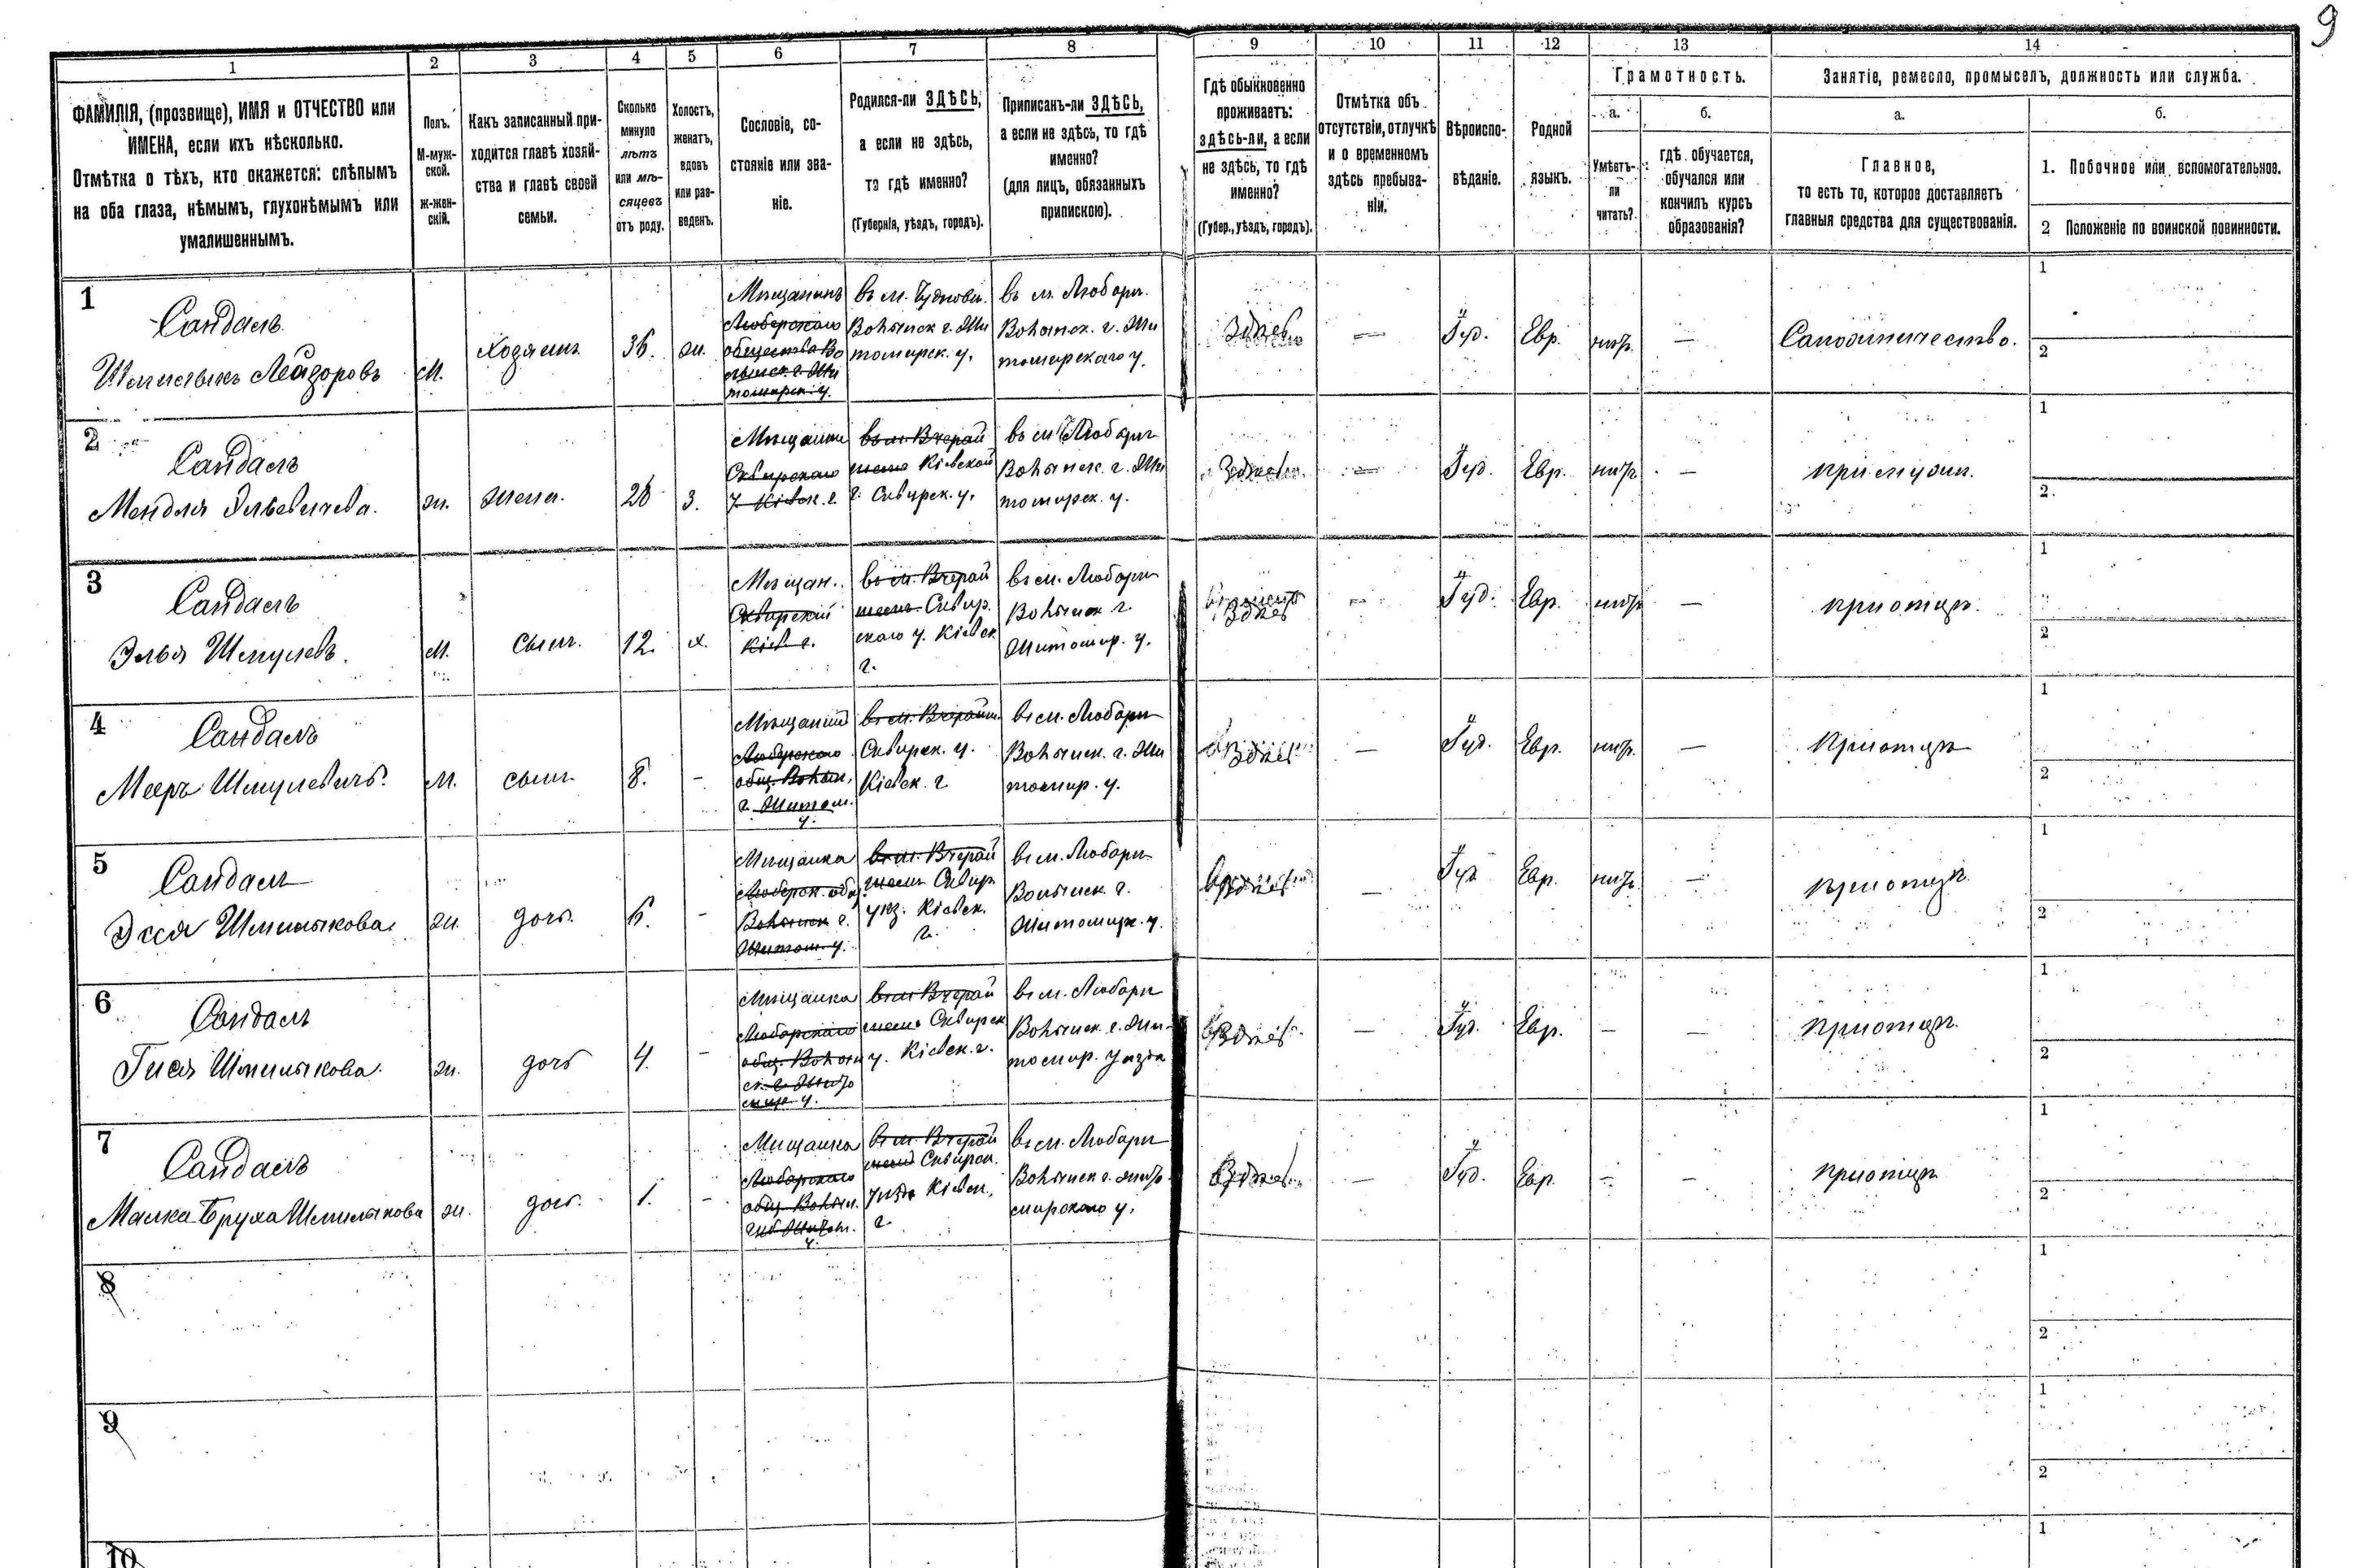 9
1 2 3 4 5 6 7 8 9 10 11 12 13 14
ФАМИЛІЯ, (прозвище), ИМЯ и ОТЧЕСТВО или
ИМЕНА, если ихъ нѣсколько.
Отмѣтка о тѣхъ, кто окажется: слѣпымъ
на оба глаза, нѣмымъ, глухонѣмымъ или
умалишеннымъ.
Полъ.
М-муж-
ской.
ж-жен-
скій.
Какъ записанный при-
ходится главѣ хозяй-
ства и главѣ своей
семьи.
Сколько
минуло
лѣтъ
или мѣ-
сяцевъ
отъ роду.
Холостъ,
женатъ,
вдовъ
или раз-
веденъ.
Сословіе, со-
стояніе или зва-
ніе.
Родился-ли ЗДѢСЬ,
а если не здѣсь,
то гдѣ именно?
(Губернія, уѣздъ, городъ).
Приписанъ-ли ЗДѢСЬ,
а если не здѣсь, то гдѣ
именно?
(для лицъ, обязанныхъ
припискою).
Гдѣ обыкновенно
проживаетъ:
здѣсь-ли, а если
не здѣсь, то гдѣ
именно?
(Губер., уѣздъ, городъ).
Отмѣтка объ
отсутствіи, отлучкѣ
и о временномъ
здѣсь пребыва-
ніи.
Вѣроиспо-
вѣданіе.
Родной
языкъ.
Грамотность.
а.
Умѣетъ-
ли
читать?
б.
гдѣ обучается,
обучался или
кончилъ курсъ
образованія?
Занятіе, ремесло, промыселъ, должность или служба.
а.
Главное,
то есть то, которое доставляетъ
главныя средства для существованія.
б.
1. Побочное или вспомогательное.
2 Положеніе по воинской повинности.
1
Сандалъ
Шмилыкъ Лейзоровъ
М.
Хозяинъ
36.
ж.
Мѣщанинъ
Люберского
общества Во
лынск. г. Жи
томирск. у.
въ м. Чудновѣ
Волынск г. Жи
томирск. у.
въ м. Любарѣ
Волынск. г. Жи
томирскаго у.
Здѣсь
—
Іуд.
Евр.
нѣтъ
—
Сапожничество.
1
2
2
Сандалъ
Мендля Эльевичева.
ж.
жена.
28
З.
Мѣщанка
Сквирского
у. Кіевск. г.
въ м. Вчерай
шемъ Кіевской
г. Сквирск. у.
въ м Любарѣ
Волынск. г. Жи
томирск. у.
Здѣсь
—
Іуд.
Евр.
нѣтъ
—
при мужѣ.
1
2.
3
Сандалъ
Элья Шмулевъ.
М.
сынъ.
12.
х.
Мѣщан.
Сквирскій
Кіев. г.
въ м. Вчерай
шемъ Сквир.
ского у. Кіевск
г.
въ м. Любарѣ
Волынск г.
Житомир. у.
Здѣсь
—
Іуд.
Евр.
нѣтъ
—
при отцѣ.
1
2
4
Сандалъ
Мееръ Шмулевичъ.
М.
сынъ.
8.
-
Мѣщанинъ
Люберского
общ. Волын.
г. Житом.
у.
въ м. Вчерайш.
Сквирск. у.
Кіевск. г.
въ м. Любарѣ
Волынск. г. Жи
томир. у.
Здѣсь
—
Іуд.
Евр.
нѣтъ
—
При отцѣ
1
2
5
Сандалъ
Эся Шмилыкова.
ж.
дочь.
6.
-
Мѣщанка
Люберск. общ.
Волынск г.
Житом. у.
въ м. Вчерай
шемъ Сквир
уѣз. Кіевск.
г.
въ м. Любарѣ
Волынск г.
Житомирск. у.
Здѣсь
—
Іуд
Евр.
нѣтъ.
—
при отцѣ.
1
2
6
Сандалъ
Гися Шмилыкова.
ж.
дочь
4.
-
Мѣщанка
Любарскаго
общ. Волын
ск. г. Жито
мир у.
въ м Вчерай
шемъ Сквирск
у. Кіевск. г.
въ м. Любарѣ
Волынск. г. Жи-
томир. уѣзда
Здѣсь
—
Іуд.
Евр.
—
—
При отцѣ.
1
2
7
Сандалъ
Малка-Бруха Шмилыкова
ж.
дочь.
1.
-
Мѣщанка
Любарского
общ. Волын.
губ Житом.
у.
въ м. Вчерай
шемъ Сквирск.
уѣзда Кіевск.
г.
въ м. Любарѣ
Волынск г. Жито
мирского у.
Здѣсь
—
Іуд.
Евр.
—
—
При отцѣ
1
2
8
1
2
9
1
2
10
1